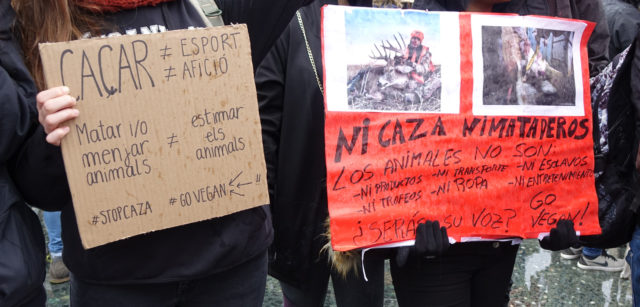 CAÇAR ≠ ESPORT
≠ AFICIÓ
Matar i/o
menjar
animals
≠
estimar
els
animals
#STOPCAZA #GO VEGAN
NI CAZA NI MATADEROS
LOS ANIMALES NO SON:
-NI PRODUCTOS -NI TRANSPORTE -NI ESCLAVOS
-NI TROFEOS -NI ROPA -NI ENTRETENIMIENTO
¿SERÍAS SU VOZ? GO
VEGAN!